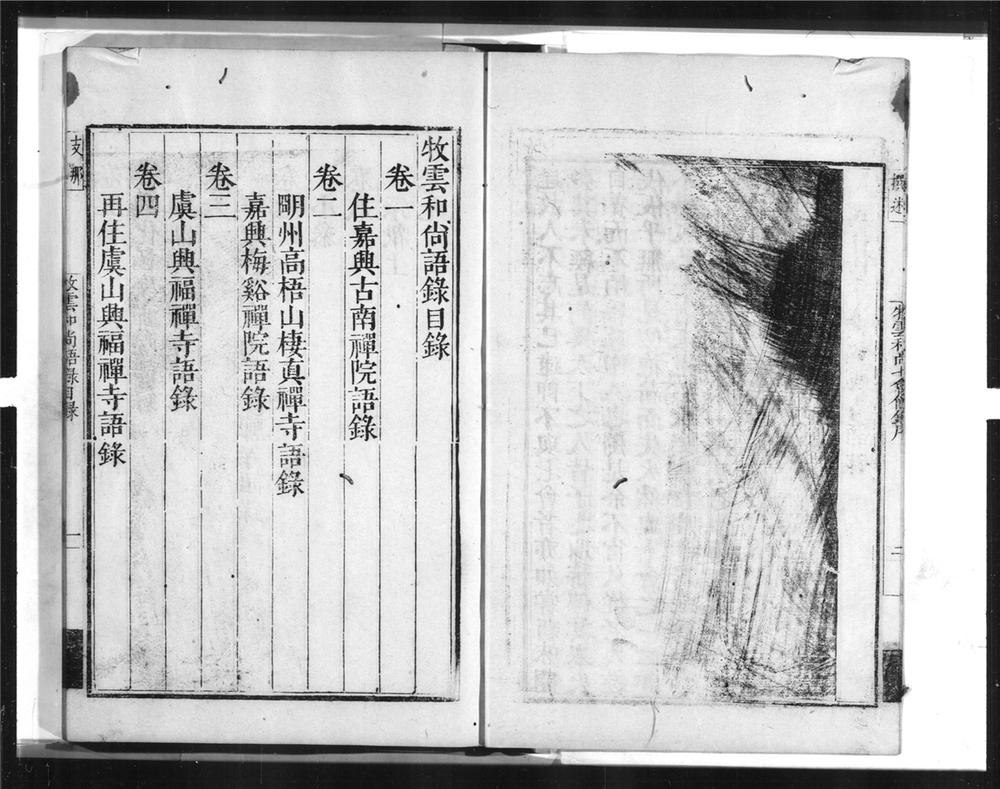 撰述
二
牧雲和尚語錄目錄
卷一
住嘉興古南禪院語錄
卷二
明州高梧山棲真禪寺語錄
嘉興梅谿禪院語錄
卷三
虞山興福禪寺語錄
卷四
再住虞山興福禪寺語錄
支那
牧雲和尚語錄目錄
一